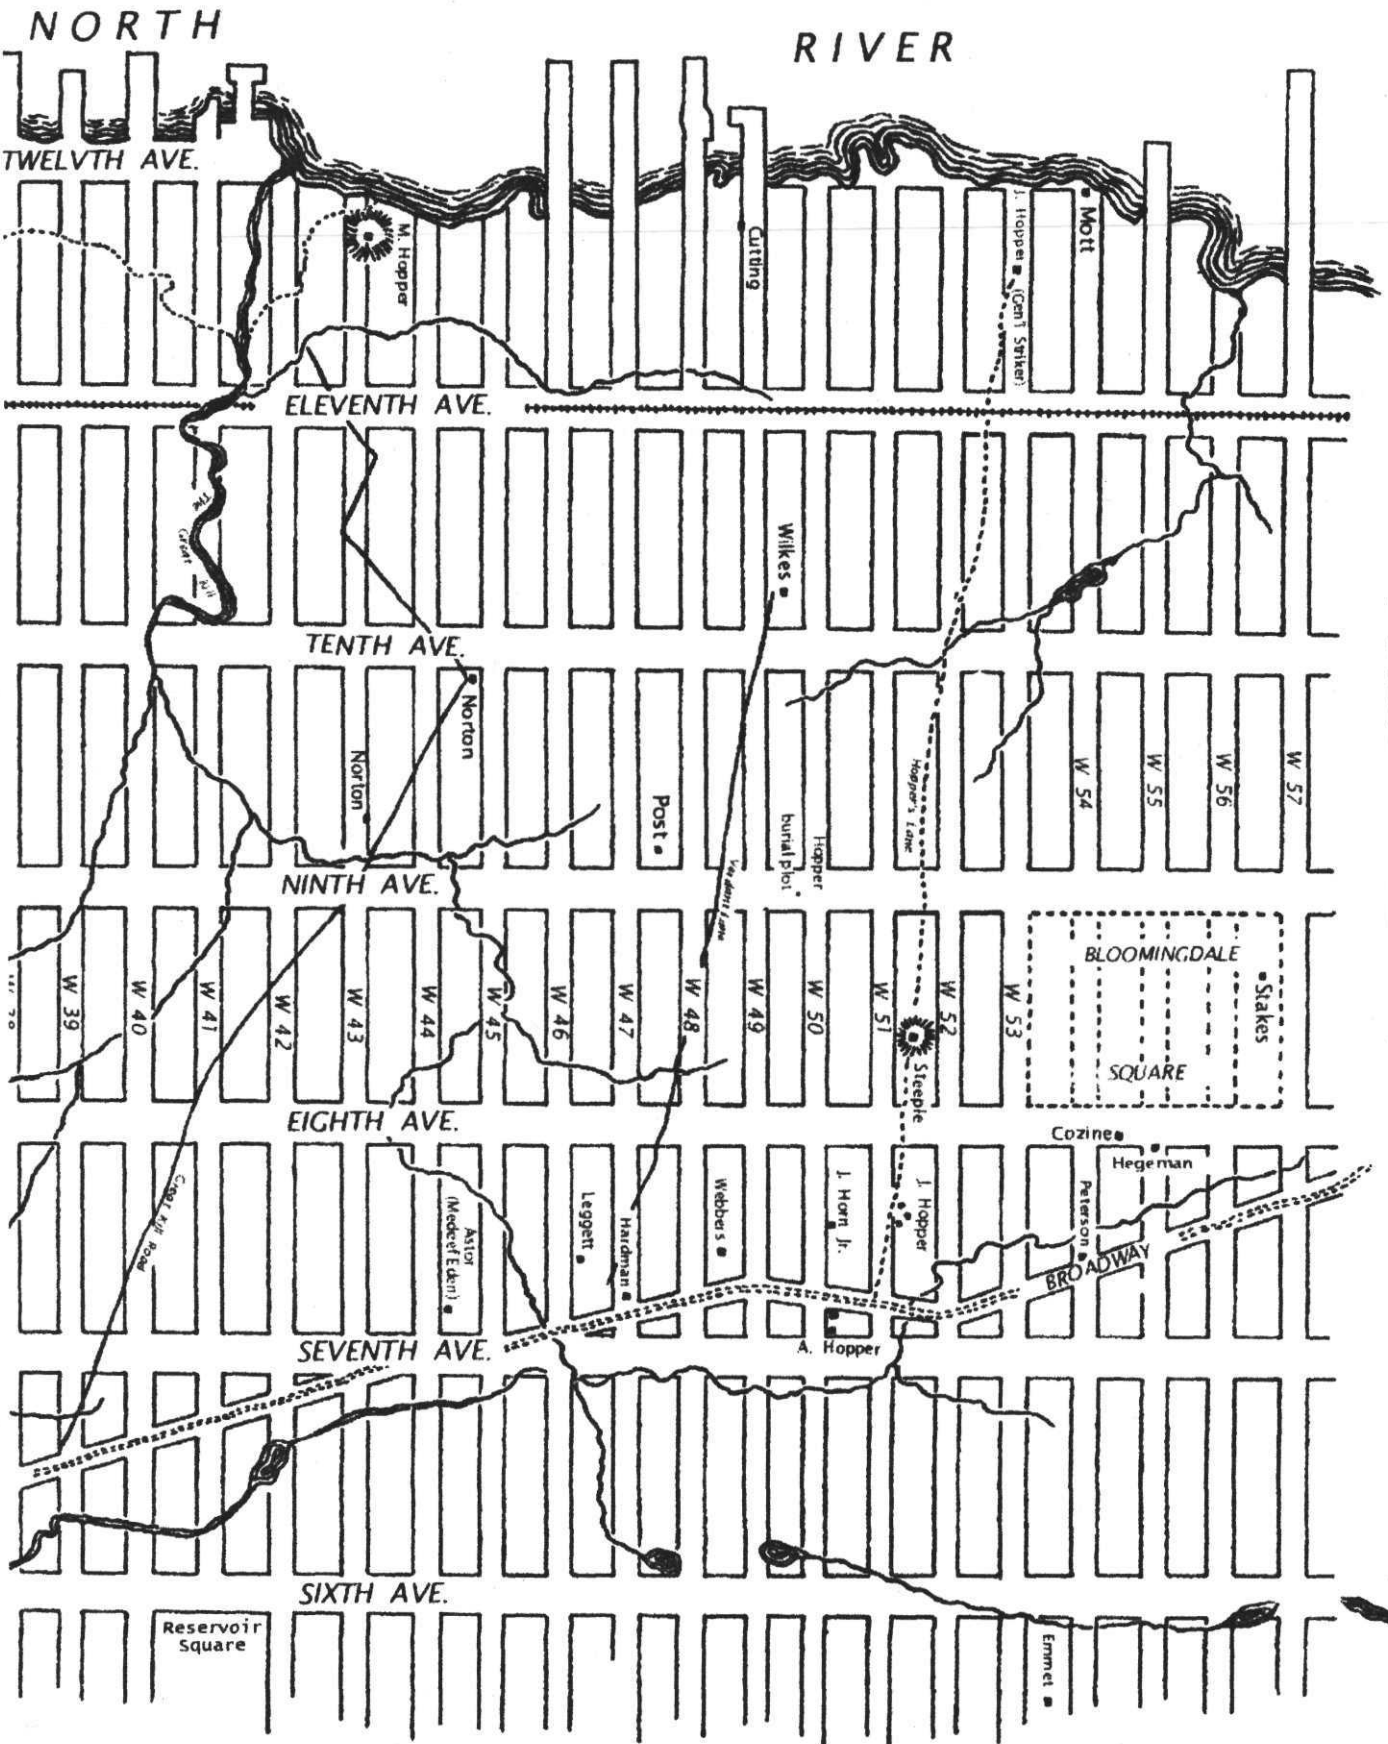 NORTH
RIVER
TWELVTH AVE.
M. Hopper
Cutting
J. Hopper
(Gen'l Striker)
Mott
ELEVENTH AVE.
The
Great
Kill
Wilkes
TENTH AVE.
Norton
Norton
Post
Hopper
burial plot
Hopper's Lane
W 54
W 55
W 56
W 57
NINTH AVE.
W 39
W 40
W 41
W 42
W 43
W 44
W 45
W 46
W 47
W 48
W 49
W 50
W 51
W 52
W 53
BLOOMINGDALE
SQUARE
Stakes
Steeple
EIGHTH AVE.
Cozine
Hegeman
Great Kill Road
Astor
(Medcef Eden)
Leggett
Hardman
Webbers
J. Horn Jr.
J. Hopper
Peterson
BROADWAY
SEVENTH AVE.
A. Hopper
SIXTH AVE.
Reservoir
Square
Emmet